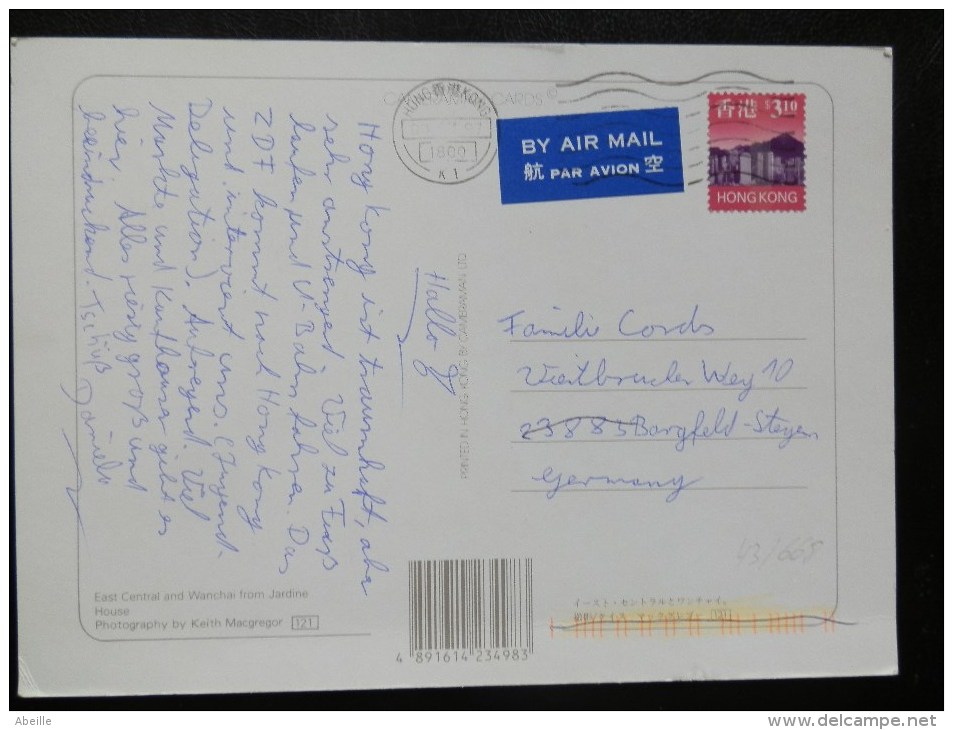 CAMERAMAN CARDS ©
HONG 香港 KONG
1800
K 1
BY AIR MAIL
航 PAR AVION 空
香港 $3.10
HONG KONG
Hallo
Hong Kong ist traumhaft, aber
sehr anstrengend. Viel zu Fuß
laufen und U-Bahn fahren. Das
ZDF kommt nach Hong Kong
und interviewt uns. (Jugend-
Delegation). Aufregend. Viel
Märkte und Kaufhäuser gibt es
hier. Alles riesig groß und
beeindruckend. Tschüß Daniela
PRINTED IN HONG KONG BY CAMERAMAN LTD
Familie Cords
Weg 10
23883 Borgfeld-
Germany
43/669
East Central and Wanchai from Jardine
House
Photography by Keith Macgregor 121
4 891614 234983
イースト・セントラルとワンチャイ。
Abeille
www.delcampe.net